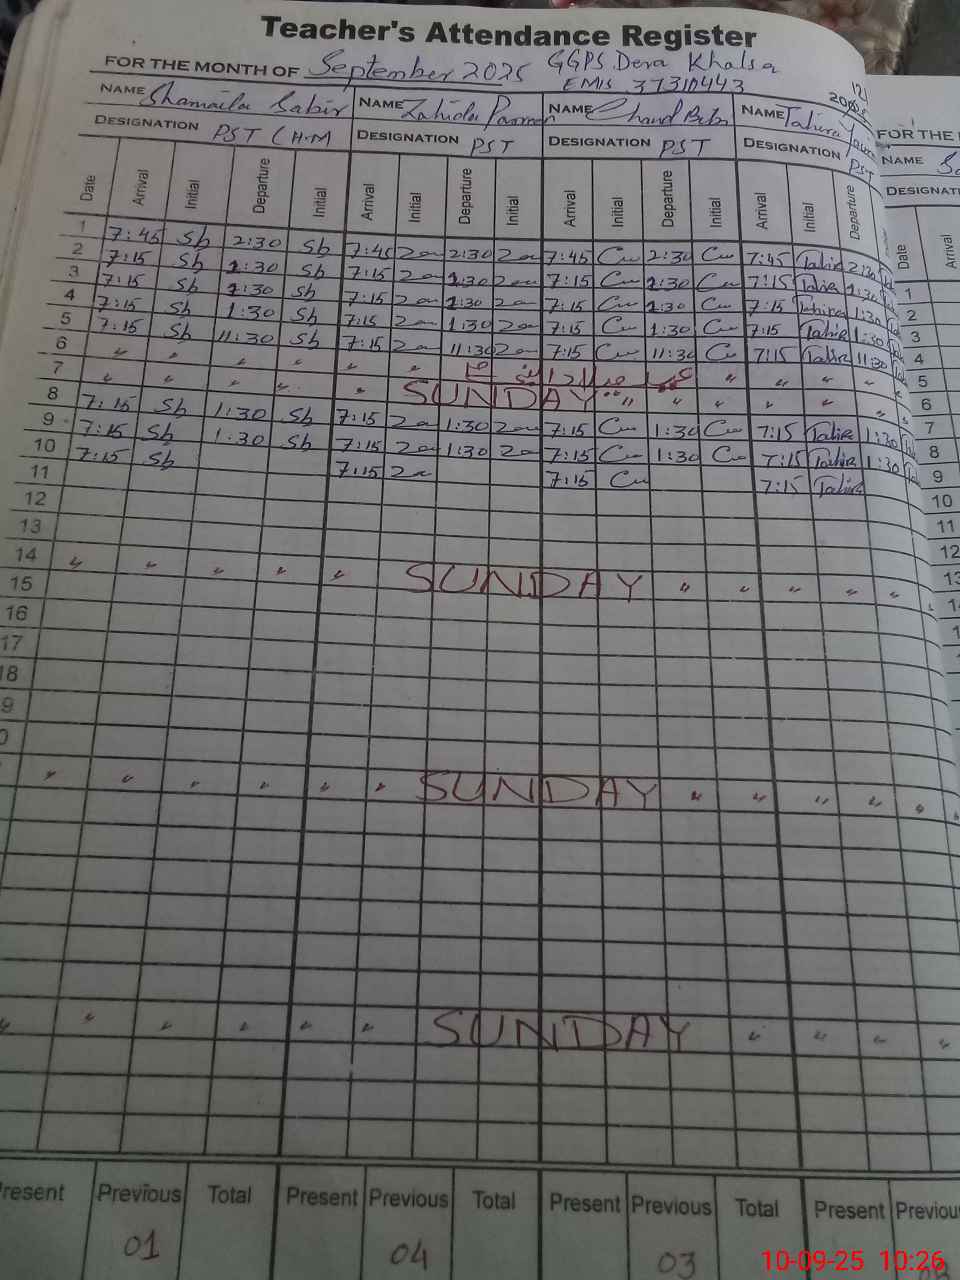 Teacher's Attendance Register
FOR THE MONTH OF September 2025 GGPS Dera Khalsa
EMIS 37310443
NAME Shamaila Sabir NAME Zahida Parveen NAME Chand Bibi NAME Tahira
DESIGNATION PST (H.M DESIGNATION PST DESIGNATION PST DESIGNATION PST
Date Arrival Initial Departure Initial Arrival Initial Departure Initial Arrival Initial Departure Initial Arrival Initial Departure
1 7:45 Sb 2:30 Sb 7:45 Za 2:30 Za 7:45 Cu 2:30 Cu 7:45 Tahira 2:30
2 7:15 Sb 1:30 Sb 7:15 Za 1:30 Za 7:15 Cu 1:30 Cu 7:15 Tahira 1:30
3 7:15 Sb 1:30 Sb 7:15 Za 1:30 Za 7:15 Cu 1:30 Cu 7:15 Tahira 1:30
4 7:15 Sb 1:30 Sb 7:15 Za 1:30 Za 7:15 Cu 1:30 Cu 7:15 Tahira 1:30
5 7:15 Sb 11:30 Sb 7:15 Za 11:30 Za 7:15 Cu 11:30 Cu 7:15 Tahira 11:30
6 " " " " " " عید میلاد النبی " " " "
7 " " " " " SUNDAY " " " " " "
8 7:15 Sb 1:30 Sb 7:15 Za 1:30 Za 7:15 Cu 1:30 Cu 7:15 Tahira 1:30
9 7:15 Sb 1:30 Sb 7:15 Za 1:30 Za 7:15 Cu 1:30 Cu 7:15 Tahira 1:30
10 7:15 Sb 7:15 Za 7:15 Cu 7:15 Tahira
11
12
13
14 " " " " " SUNDAY " " " " "
15
16
17
18
9
0
" " " " " " SUNDAY " " " " " "
" " " " " " SUNDAY " " " "
Present Previous Total Present Previous Total Present Previous Total Present Previous
01 04 03
FOR THE
NAME
DESIGNATI
Date Arrival
1
2
3
4
5
6
7
8
9
10
11
12
13
14
10-09-25 10:26